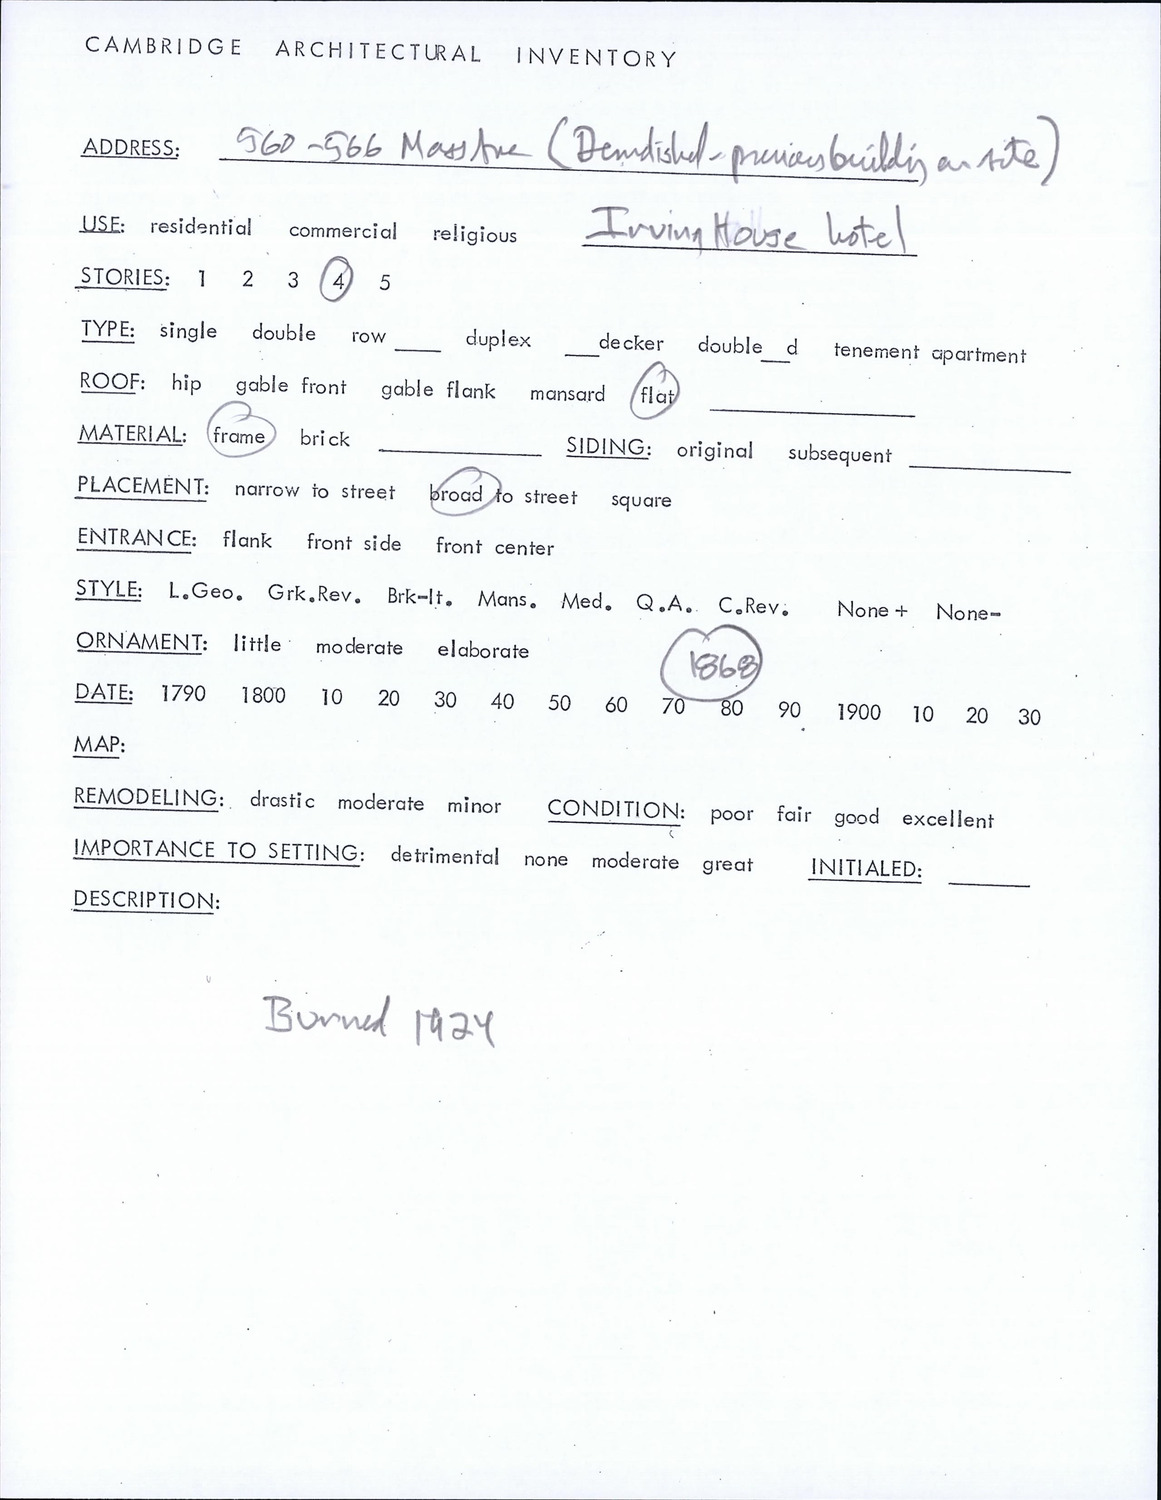 CAMBRIDGE ARCHITECTURAL INVENTORY
ADDRESS: 560-566 Mass Ave (Demolished - previous building on site)
USE: residential commercial religious Irving House hotel
STORIES: 1 2 3 4 5
TYPE: single double row ____ duplex ___decker double__d tenement apartment
ROOF: hip gable front gable flank mansard flat ____
MATERIAL: frame brick ____ SIDING: original subsequent ____
PLACEMENT: narrow to street broad to street square
ENTRANCE: flank front side front center
STYLE: L.Geo. Grk.Rev. Brk-It. Mans. Med. Q.A. C.Rev. None+ None-
ORNAMENT: little moderate elaborate 1868
DATE: 1790 1800 10 20 30 40 50 60 70 80 90 1900 10 20 30
MAP:
REMODELING: drastic moderate minor CONDITION: poor fair good excellent
IMPORTANCE TO SETTING: detrimental none moderate great INITIALED: ____
DESCRIPTION:
Burned 1924